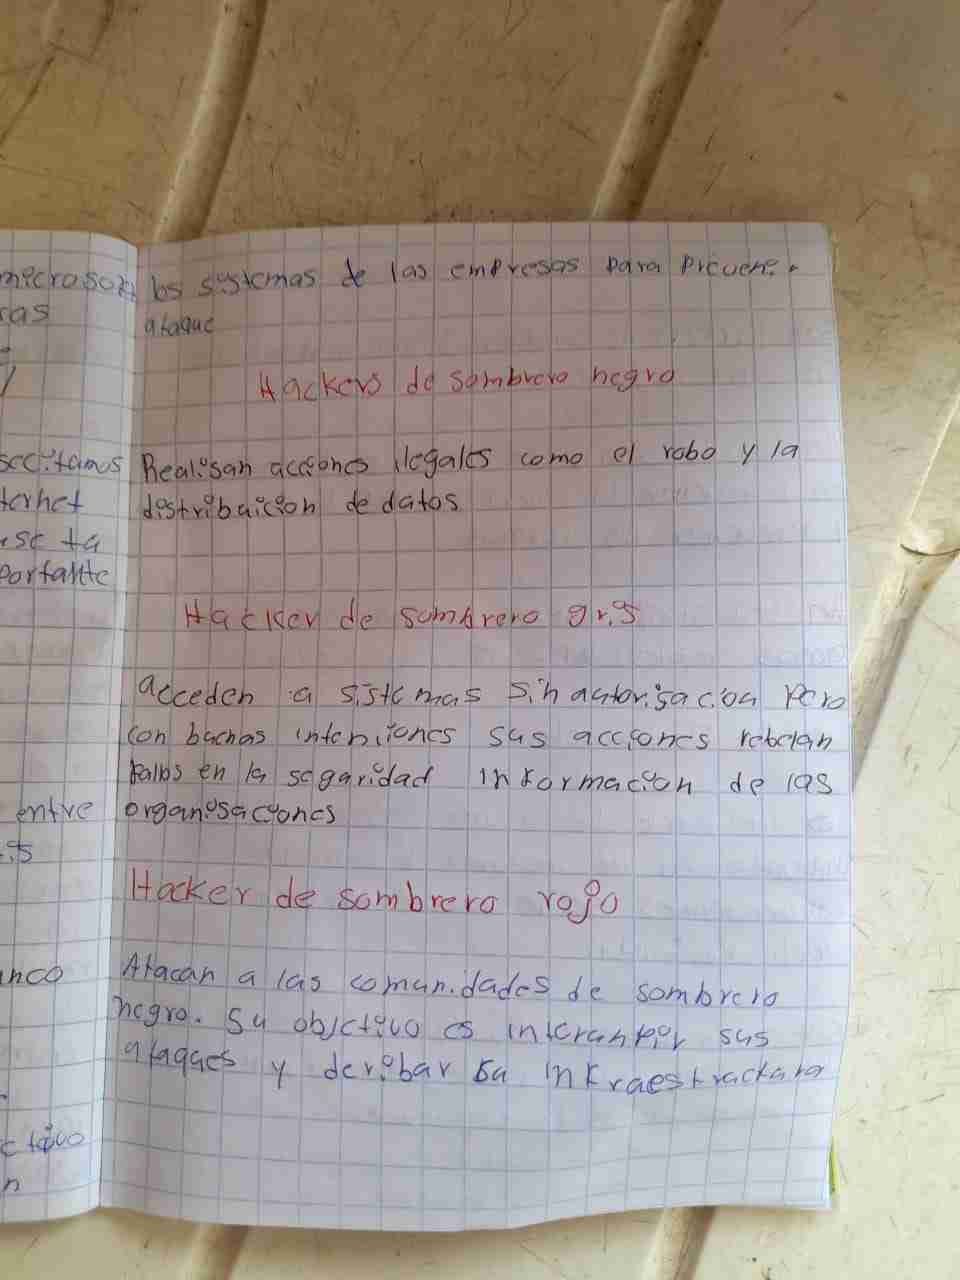 los systemas de las empresas para prevenir
ataque
Hackers de sombrero negro
Realisan acciones ilegales como el robo y la
distribuicion de datos
Hacker de sombrero gris
acceden a sistemas sin autorisacion pero
con buenas intenciones sus acciones rebelan
fallos en la seguridad informacion de las
organisaciones
Hacker de sombrero rojo
Atacan a las comunidades de sombrero
negro. Su objetivo es interumpir sus
ataques y deribar su infraestructura
ras
secitamos
ternet
se ta
portante
entre
anco
ctivo
n